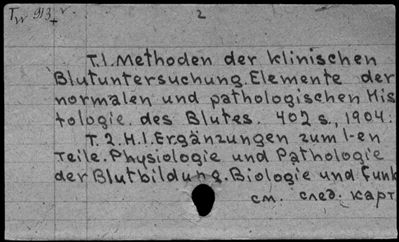 Tw 913 v. 2
T.1. Methoden der klinischen
Blutuntersuchung. Elemente der
normalen und pathologischen His
tologie. des Blutes. 402 s., 1904.
T. 2. H.1. Ergänzungen zum 1-en
Teile. Physiologie und Pathologie
der Blutbildung. Biologie und Funk
см. след. карт